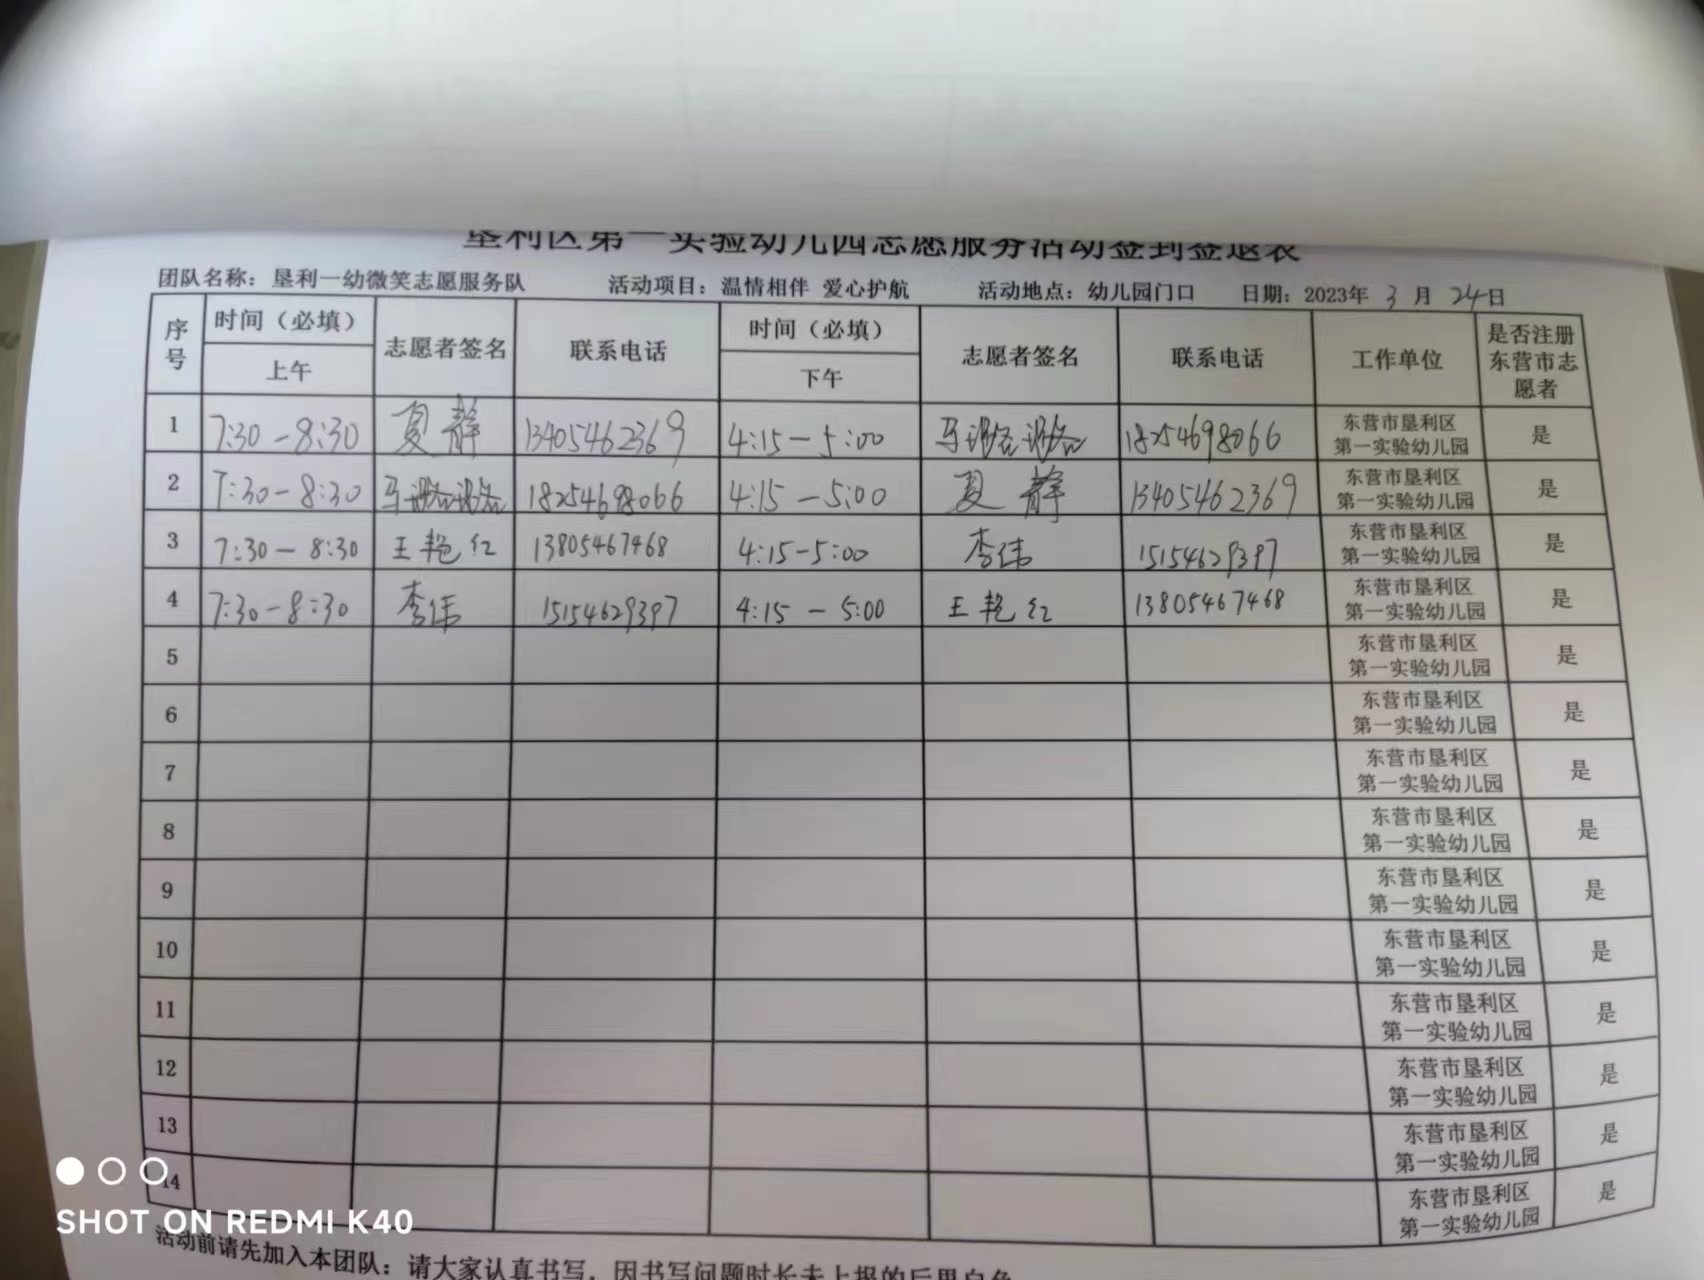 垦利区第一实验幼儿园志愿服务活动签到签退表
团队名称：垦利一幼微笑志愿服务队 活动项目：温情相伴 爱心护航 活动地点：幼儿园门口 日期：2023年 3 月 24日
序号 时间（必填） 上午 志愿者签名 联系电话 时间（必填） 下午 志愿者签名 联系电话 工作单位 是否注册东营市志愿者
1 7:30-8:30 夏静 13405462369 4:15-5:00 马 18254698066 东营市垦利区第一实验幼儿园 是
2 7:30-8:30 马 18254698066 4:15-5:00 夏静 13405462369 东营市垦利区第一实验幼儿园 是
3 7:30-8:30 王艳红 13805467468 4:15-5:00 李伟 15154629397 东营市垦利区第一实验幼儿园 是
4 7:30-8:30 李伟 15154629397 4:15-5:00 王艳红 13805467468 东营市垦利区第一实验幼儿园 是
5 东营市垦利区第一实验幼儿园 是
6 东营市垦利区第一实验幼儿园 是
7 东营市垦利区第一实验幼儿园 是
8 东营市垦利区第一实验幼儿园 是
9 东营市垦利区第一实验幼儿园 是
10 东营市垦利区第一实验幼儿园 是
11 东营市垦利区第一实验幼儿园 是
12 东营市垦利区第一实验幼儿园 是
13 东营市垦利区第一实验幼儿园 是
14 东营市垦利区第一实验幼儿园 是
SHOT ON REDMI K40
活动前请先加入本团队：请大家认真书写，因书写问题时长未上报的后果自负